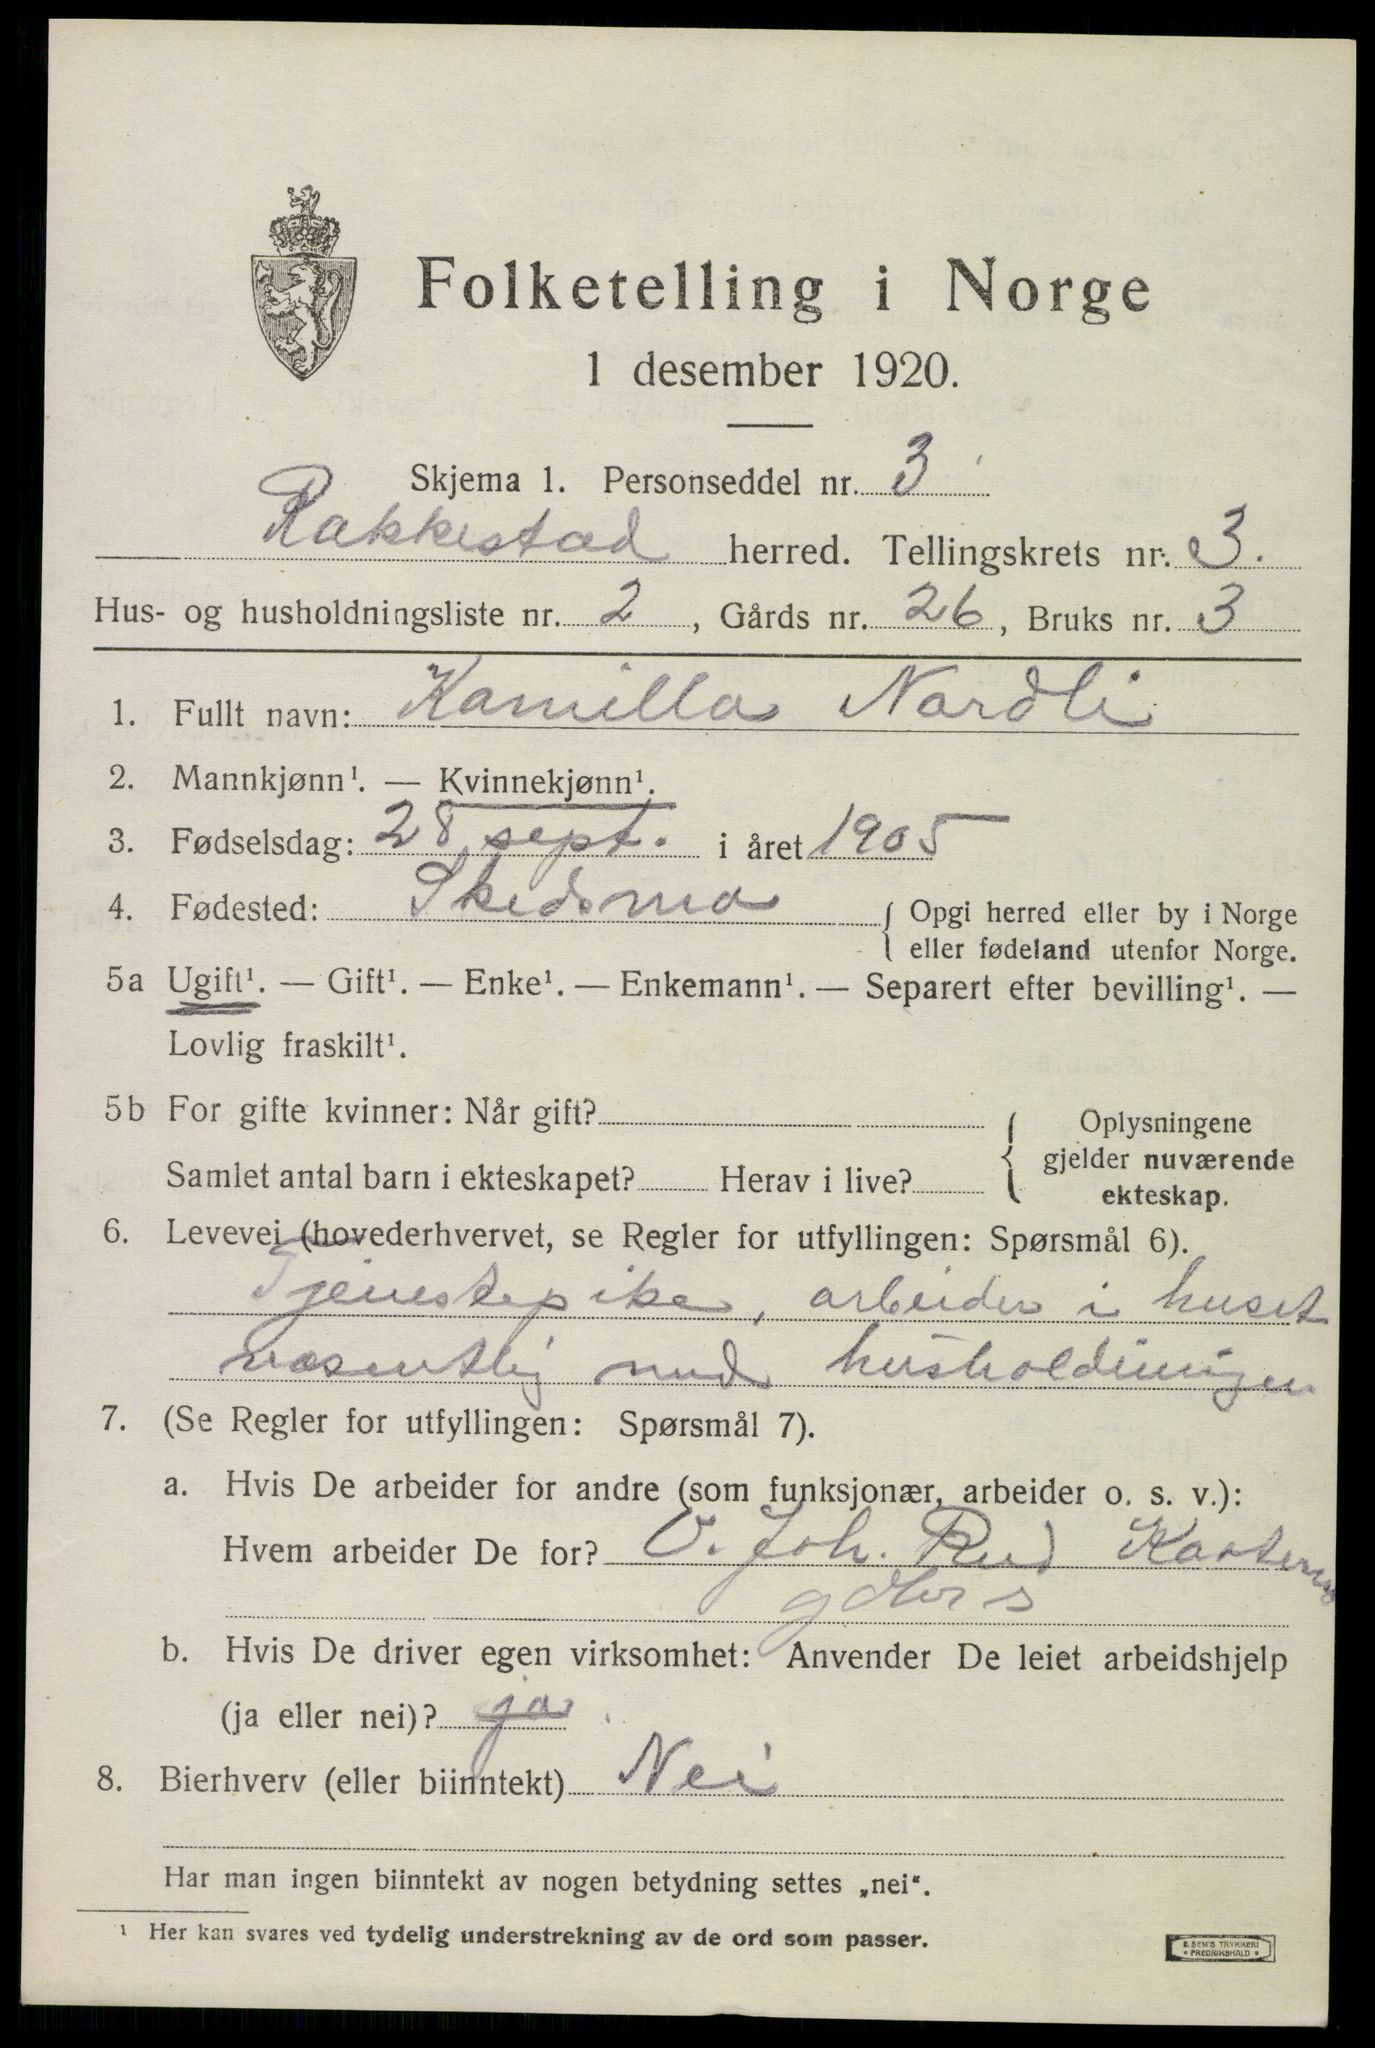 Folketelling i Norge
1 desember 1920.
Skjema 1. Personseddel nr. 3
Rakkestad herred. Tellingskrets nr. 3.
Hus- og husholdningsliste nr. 2, Gårds nr. 26, Bruks nr. 3
1. Fullt navn: Kamilla Nordli
2. Mannkjønn¹. — Kvinnekjønn¹.
3. Fødselsdag: 28 sept. i året 1905
4. Fødested: Skedsmo
{ Opgi herred eller by i Norge
eller fødeland utenfor Norge.
5a Ugift¹. — Gift¹. — Enke¹. — Enkemann¹. — Separert efter bevilling¹. —
Lovlig fraskilt¹.
5b For gifte kvinner: Når gift?
Samlet antal barn i ekteskapet? Herav i live?
{ Oplysningene
gjelder nuværende
ekteskap.
6. Levevei (hovederhvervet, se Regler for utfyllingen: Spørsmål 6).
Tjenestepike, arbeider i huset
væsentlig med husholdningen
7. (Se Regler for utfyllingen: Spørsmål 7).
a. Hvis De arbeider for andre (som funksjonær, arbeider o. s. v.):
Hvem arbeider De for? O. Joh. Rud
b. Hvis De driver egen virksomhet: Anvender De leiet arbeidshjelp
(ja eller nei)? ja.
8. Bierhverv (eller biinntekt) Nei
Har man ingen biinntekt av nogen betydning settes „nei“.
¹ Her kan svares ved tydelig understrekning av de ord som passer.
E. SEM'S TRYKKERI
• FREDRIKSHALD •